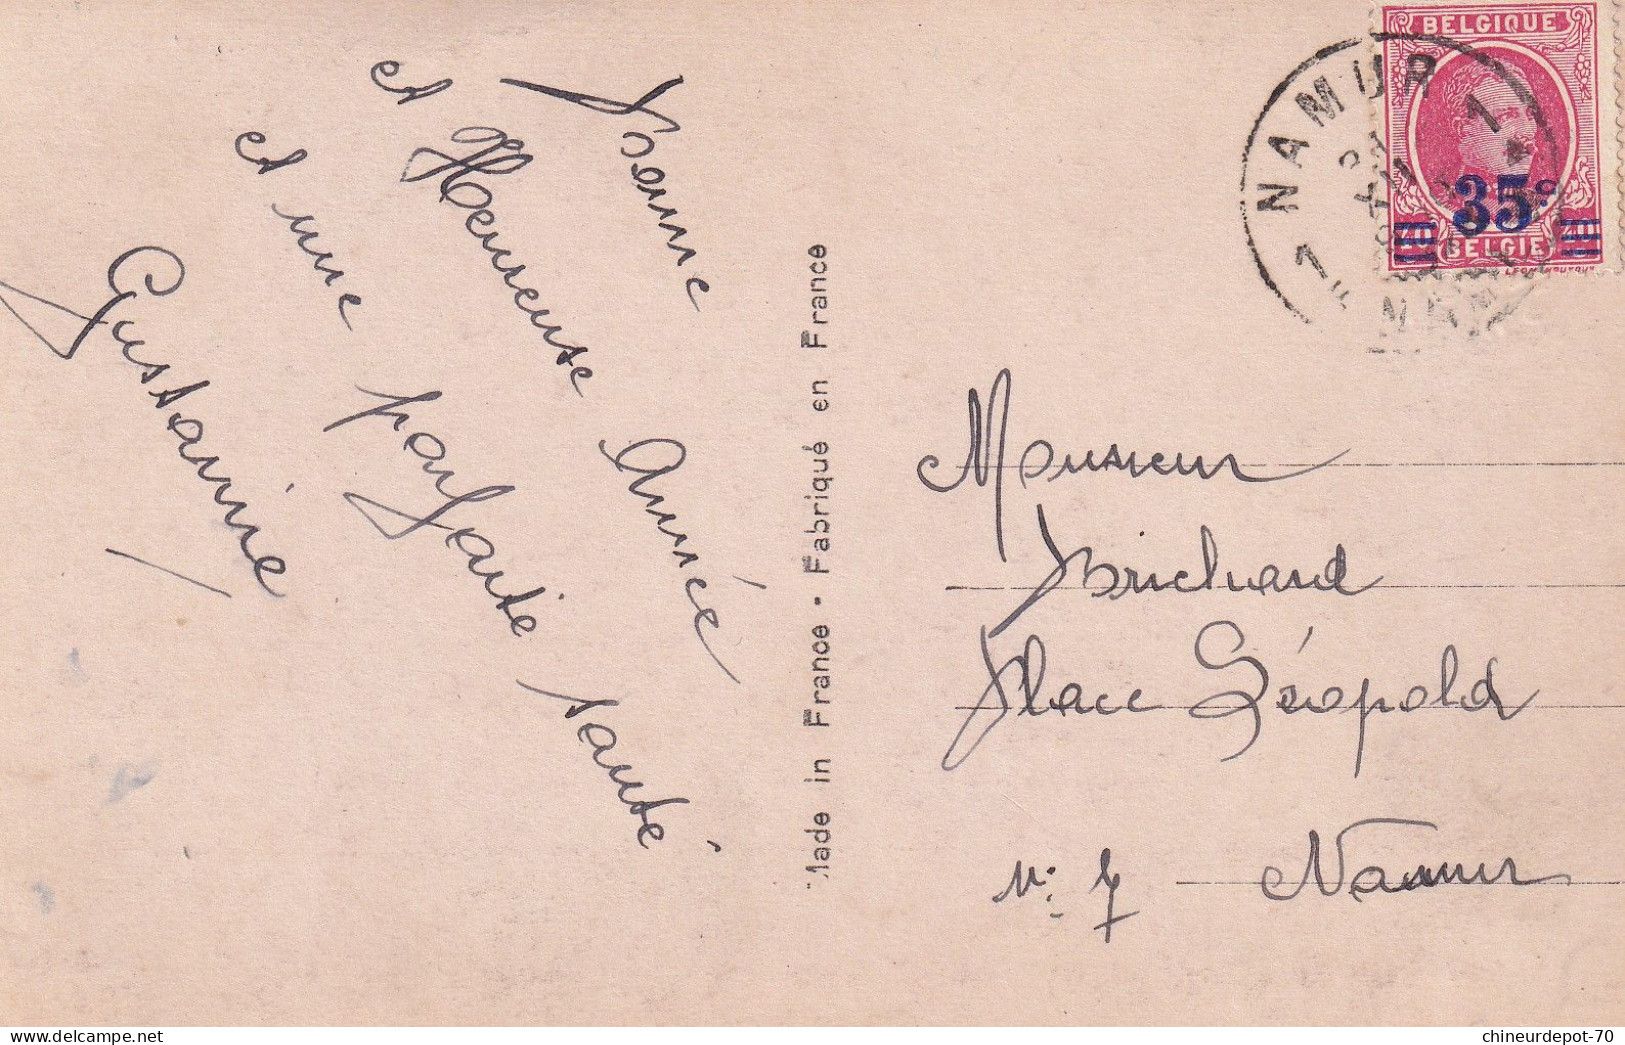 Bonne
et Heureuse Année
et une parfaite santé
Gustavie
Made in France - Fabriqué en France
BELGIQUE
35c
40 40
BELGIE
1 NAMUR 1
NAMEN
Monsieur
Brichard
Place Léopold
N: 7 Namur
delcampe.net
chineurdepot-70